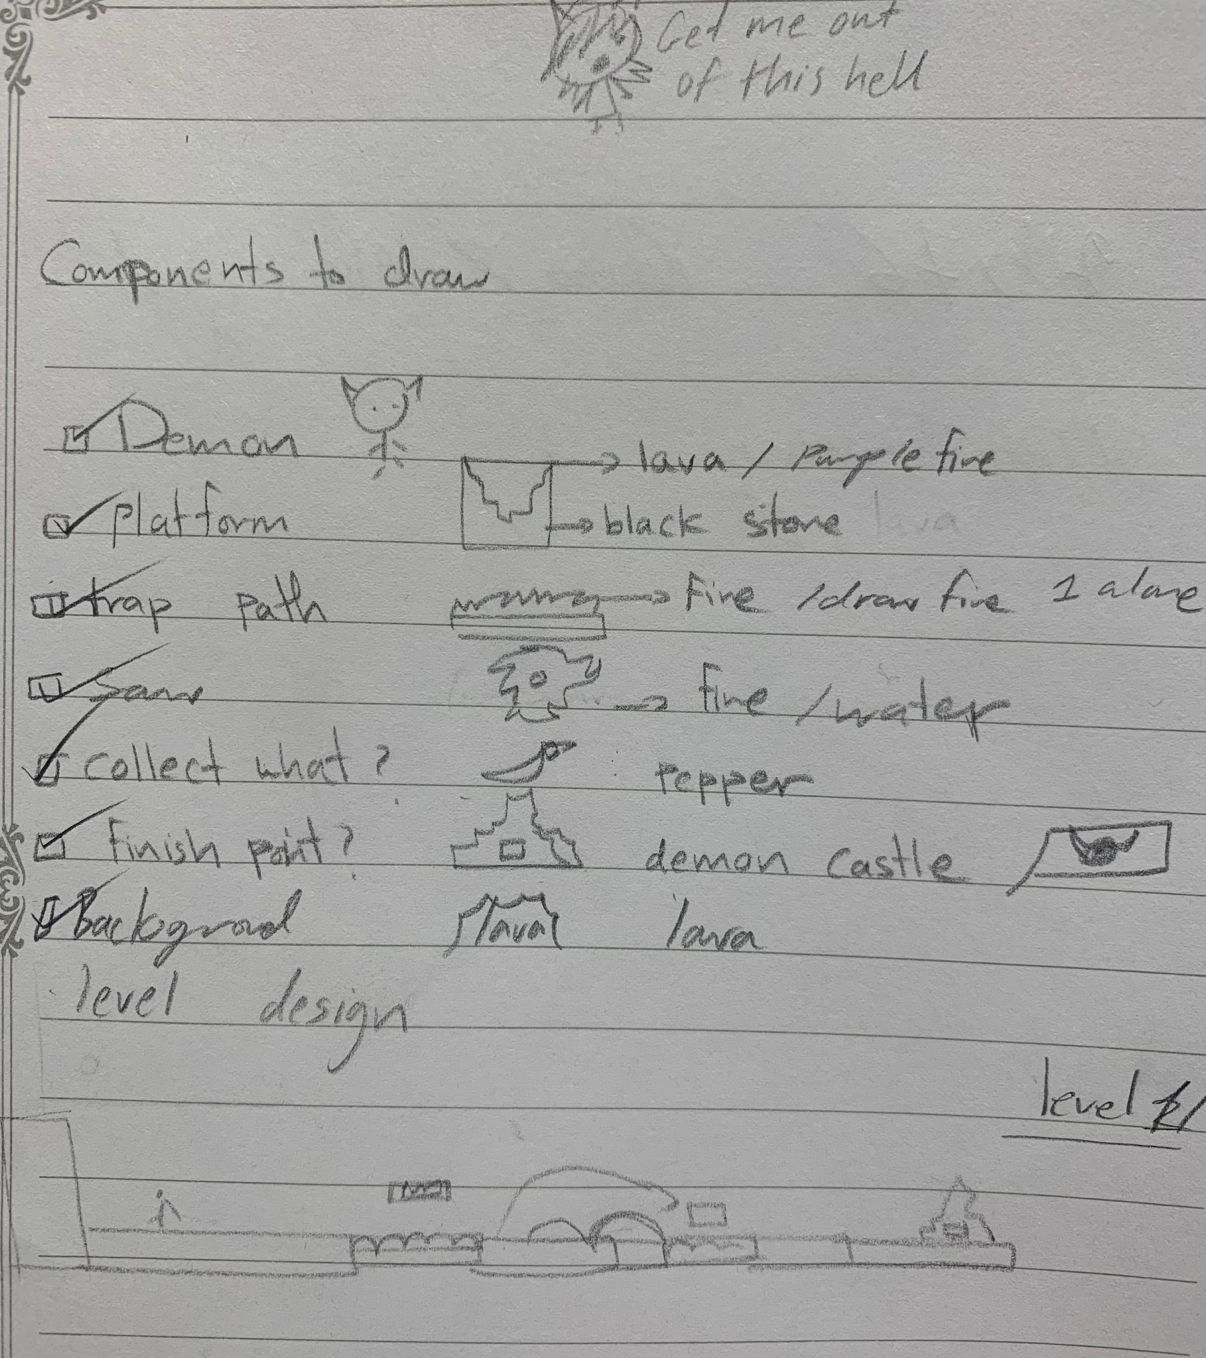 Get me out
of this hell
Components to draw
Demon
lava / Purple fire
Platform
black stone lava
trap path
Fire / draw fire 1 alone
Saw
fire / water
Collect what?
Pepper
Finish point?
demon castle
Background
lava
lava
level design
level